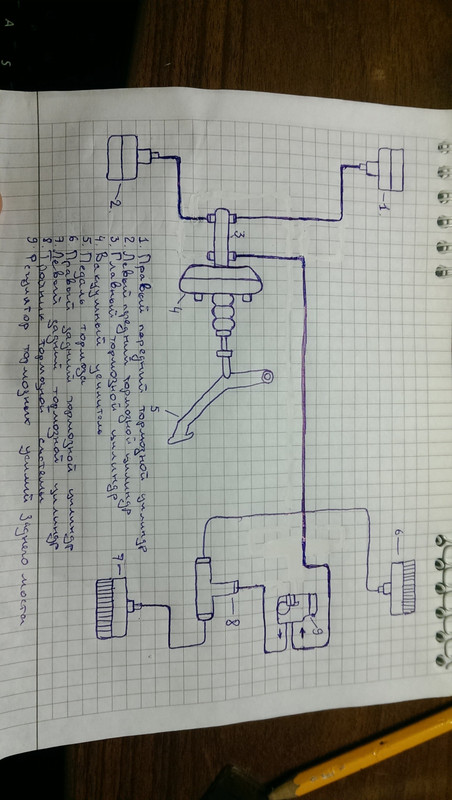 1
2
3
4
5
6
7
8
9
1. Правый передний тормозной цилиндр
2. Левый передний тормозной цилиндр
3. Главный тормозной цилиндр
4. Вакуумный усилитель
5. Педаль тормоза
6. Правый задний тормозной цилиндр
7. Левый задний тормозной цилиндр
8. Тройник тормозной системы
9. Регулятор тормозных усилий заднего моста